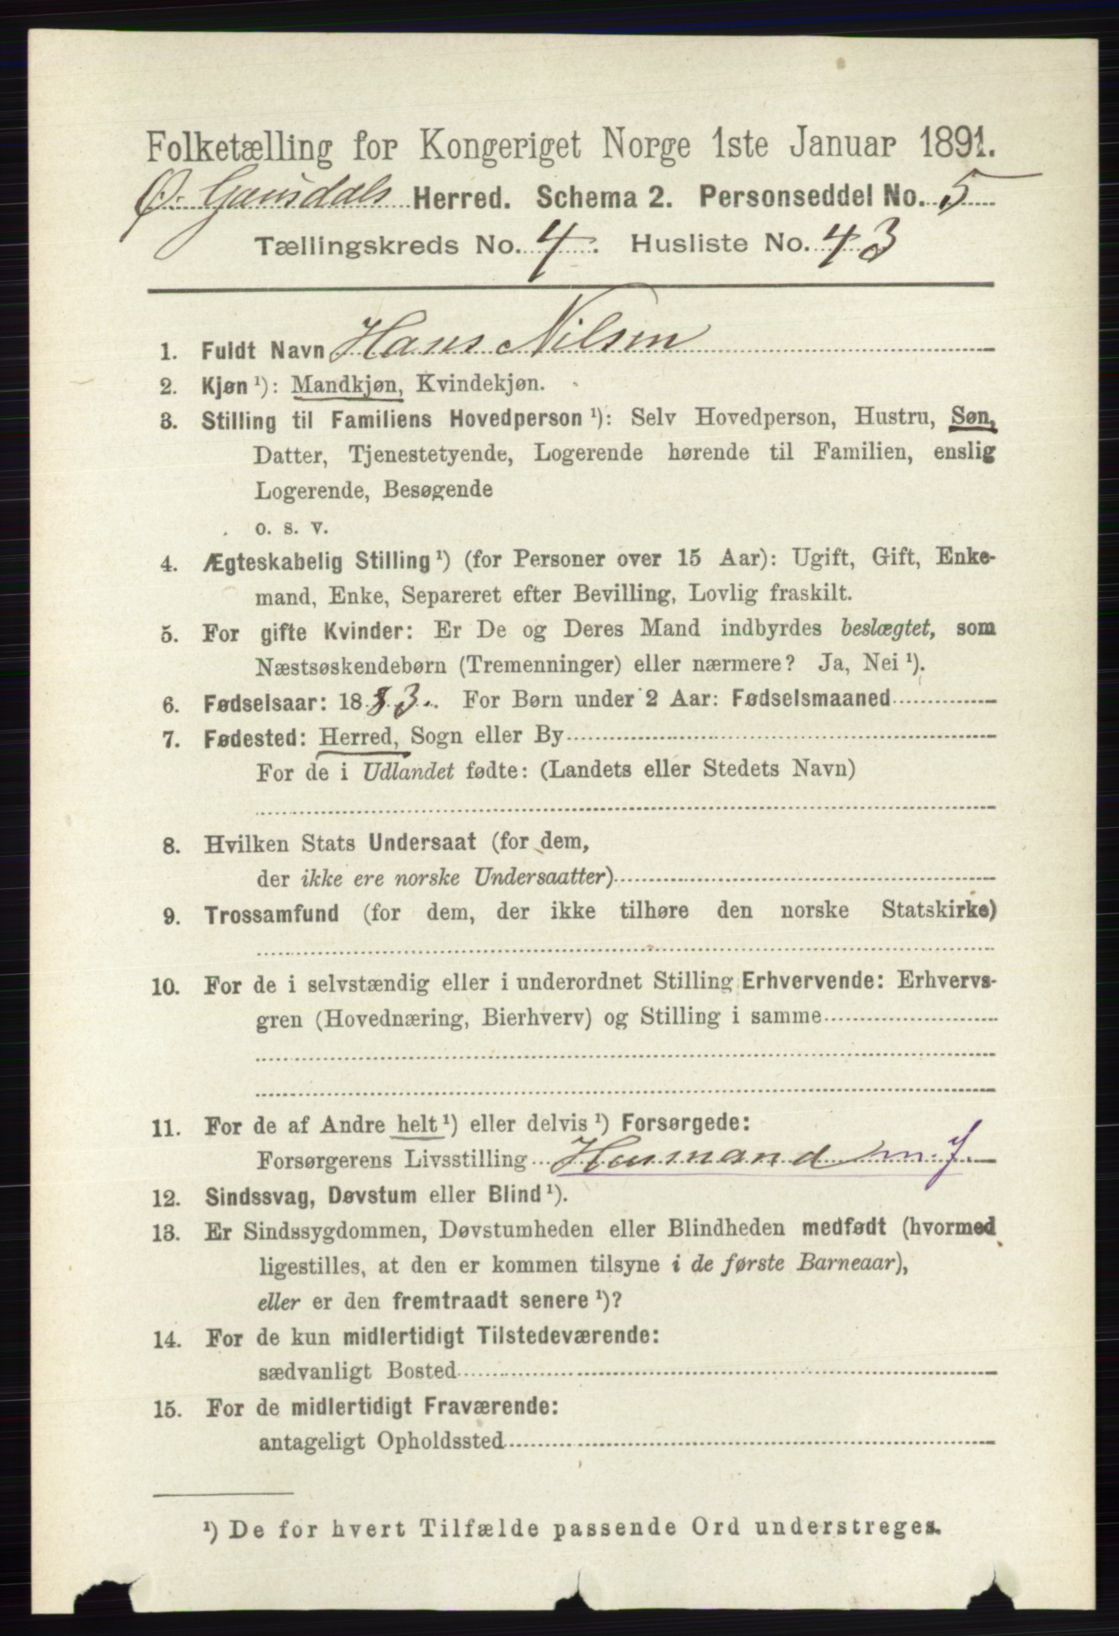 Folketælling for Kongeriget Norge 1ste Januar 1891.
Ø. Gausdals Herred. Schema 2. Personseddel No. 5
Tællingskreds No. 4. Husliste No. 43
1. Fuldt Navn Hans Nilsen
2. Kjøn ¹): Mandkjøn, Kvindekjøn.
3. Stilling til Familiens Hovedperson ¹): Selv Hovedperson, Hustru, Søn,
Datter, Tjenestetyende, Logerende hørende til Familien, enslig
Logerende, Besøgende
o. s. v.
4. Ægteskabelig Stilling ¹) (for Personer over 15 Aar): Ugift, Gift, Enke-
mand, Enke, Separeret efter Bevilling, Lovlig fraskilt.
5. For gifte Kvinder: Er De og Deres Mand indbyrdes beslægtet, som
Næstsøskendebørn (Tremenninger) eller nærmere? Ja, Nei ¹).
6. Fødselsaar: 1883. For Børn under 2 Aar: Fødselsmaaned
7. Fødested: Herred, Sogn eller By
For de i Udlandet fødte: (Landets eller Stedets Navn)
8. Hvilken Stats Undersaat (for dem,
der ikke ere norske Undersaatter)
9. Trossamfund (for dem, der ikke tilhøre den norske Statskirke)
10. For de i selvstændig eller i underordnet Stilling Erhvervende: Erhvervs-
gren (Hovednæring, Bierhverv) og Stilling i samme
11. For de af Andre helt ¹) eller delvis ¹) Forsørgede:
Forsørgerens Livsstilling Husmand m. J.
12. Sindssvag, Døvstum eller Blind ¹).
13. Er Sindssygdommen, Døvstumheden eller Blindheden medfødt (hvormed
ligestilles, at den er kommen tilsyne i de første Barneaar),
eller er den fremtraadt senere ¹)?
14. For de kun midlertidigt Tilstedeværende:
sædvanligt Bosted
15. For de midlertidigt Fraværende:
antageligt Opholdssted
¹) De for hvert Tilfælde passende Ord understreges.